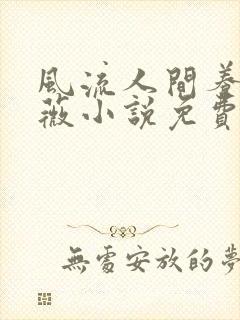 風流人間養
薇小説免費
無處安放的夢